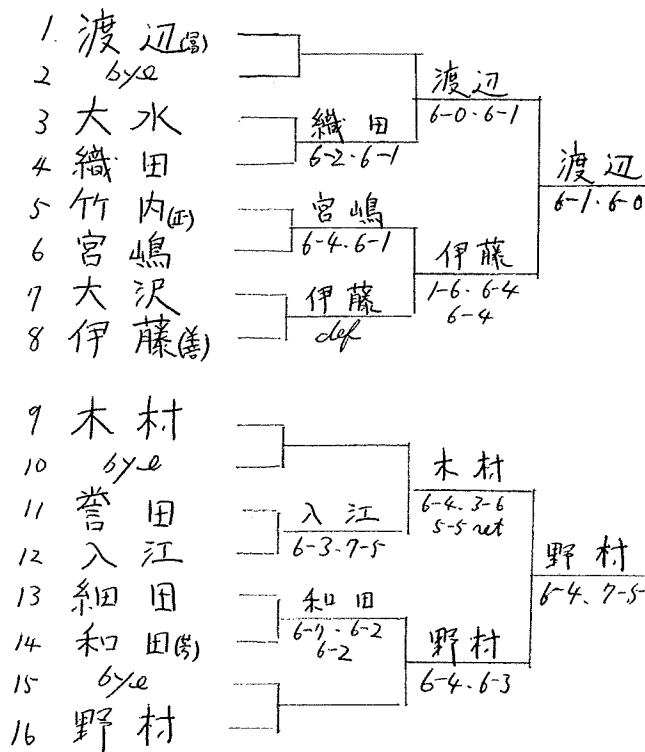 1. 渡辺(冨)
2 bye
3 大水
4 織田
5 竹内(正)
6 宮嶋
7 大沢
8 伊藤(善)
織田
6-2・6-1
宮嶋
6-4・6-1
伊藤
def
渡辺
6-0・6-1
伊藤
1-6・6-4
6-4
渡辺
6-1・6-0
9 木村
10 bye
11 誉田
12 入江
13 細田
14 和田(芳)
15 bye
16 野村
入江
6-3・7-5
和田
6-7・6-2
6-2
木村
6-4、3-6
5-5 ret
野村
6-4・6-3
野村
6-4、7-5